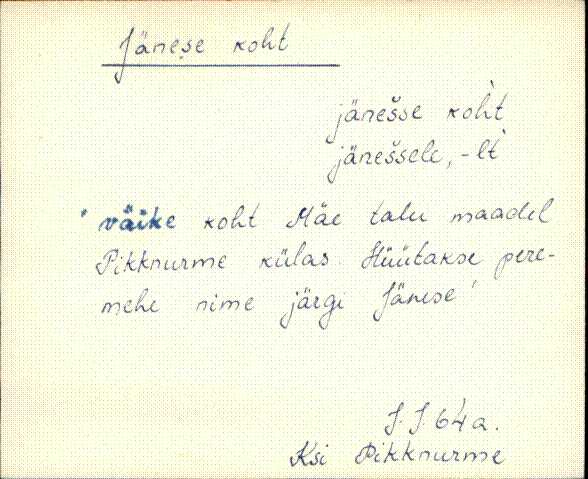 Jänese koht
jänešse koh̀t
jänešsele, -lt̀
" väike koht Mäe talu maadel
Pikknurme külas. Hüütakse pere-
mehe nime järgi Jänese"
J. J. 64a.
Ksi Pikknurme